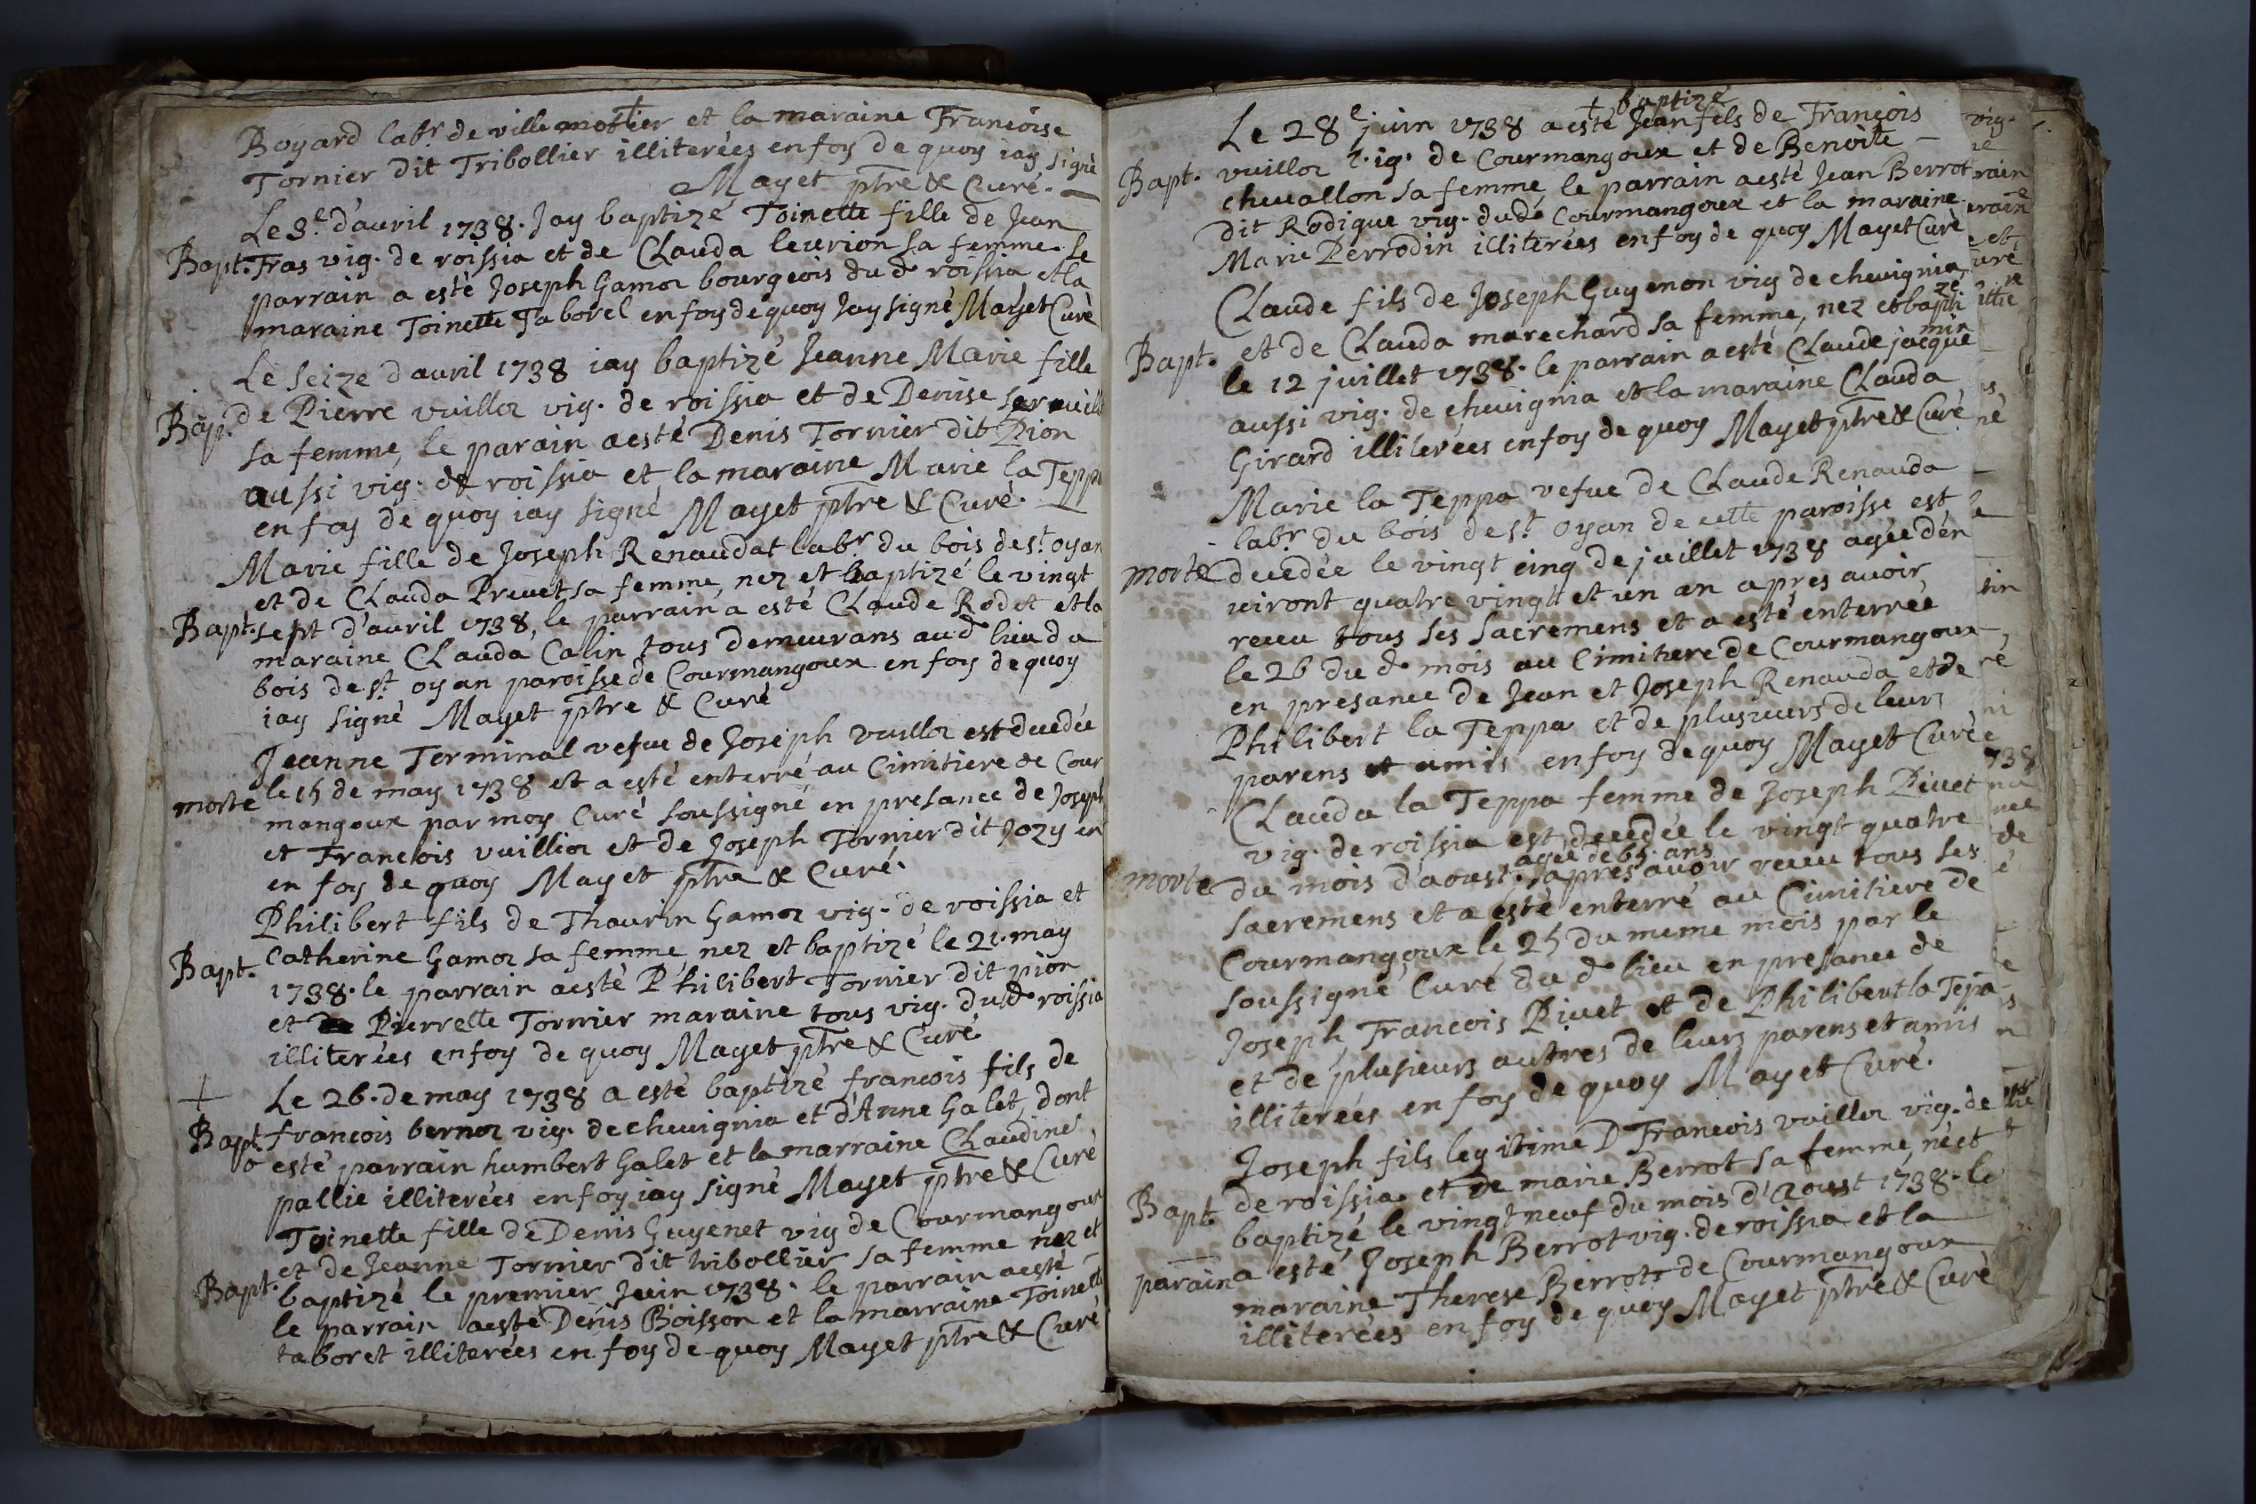 Boyard labr. de ville mottier et la maraine Francoise
Tornier dit Tribollier illiterées en foy de quoy iay signé
Mayet ptre & Curé.
Le 3e. d'auril 1738. Jay baptizé Toinette fille de Jean
Bapt. Fras vig. de roissia et de Clauda leurion sa femme. le
parrain a esté Joseph Gamoz bourgeois du d. roissia et la
maraine Toinette Taborel en foy de quoy Jay signé Mayet Curé
Le seize dauril 1738 iay baptizé Jeanne Marie fille
Bap. de Pierre vuilloz vig. de roissia et de Denise
sa femme, le parain a esté Denis Tornier dit Pion
aussi vig. de roissia et la maraine Marie la Teppa
en foy de quoy iay signé Mayet ptre & Curé.
Marie fille de Joseph Renaudat labr. du bois de st. oyan
et de Clauda Preuet sa femme, nez et baptizé le vingt
Bapt. sept d'auril 1738, le parrain a esté Claude Rodet et la
maraine Clauda Calin tous demeurans au d. lieu du
bois de st. oyan paroisse de Courmangoux en foy de quoy
iay signé Mayet ptre & Curé
Jeanne Terminal vefue de Joseph vuilloz est decedée
morte le 15 de may 1738 et a esté enterré au Cimitiere de Cour
mangoux par moy Curé soussigné en presance de Joseph
et Francois vuillioz et de Joseph Tornier dit Jozy en
en foy de quoy Mayet ptre & Curé.
Philibert fils de Thaurin Gamoz vig. de roissia et
Bapt. Catherine Gamoz sa femme nez et baptizé le 21. may
1738. le parrain a esté Philibert Tornier dit pion
et Pierrette Tornier maraine tous vig. dud. roissia
illiterées en foy de quoy Mayet ptre & Curé
Le 26. de may 1738 a esté baptizé francois fils de
Bapt francois bernoz vig. de cheuignia et d'Anne Galet, dont
o esté parrain humbert Galet et la marraine Claudine
pallie illiterées en foy iay signé Mayet ptre & Curé
Toinette fille de Denis Guyenet vig de Courmangoux
et de Jeanne Tornier dit tribollier sa femme nez et
Bapt. baptizé le premier Juin 1738. le parrain a esté
le parrain a esté Denis Boisson et la marraine Toinette
taboret illiterées en foy de quoy Mayet ptre & Curé
baptizé
Le 28e juin 1738 a esté Jean fils de François
Bapt. vuilloz vig. de Courmangoux et de Benoite
cheuallon sa femme, le parrain a esté Jean Berrot
dit Rodigue vig. dud. Courmangoux et la maraine
Marie Perrodin illiterées en foy de quoy Mayet Curé
Claude fils de Joseph Guymon vig de cheuignia
Bapt. et de Clauda marechard sa femme, nez et baptizé
le 12 juillet 1738. le parrain a esté Claude jacquemin
aussi vig. de cheuignia et la maraine Clauda
Girard illiterées en foy de quoy Mayet ptre & Curé
Marie la Teppa vefue de Claude Renauda
labr. du bois de st. oyan de cette paroisse est
morte decedée le vingt cinq de juillet 1738 agée d'en
uiront quatre vingt et un an apres auoir
receu tous ses sacremens et a esté enterrée
le 26 du d. mois au Cimitiere de Courmangoux
en presance de Jean et Joseph Renauda et de
Philibert la Teppa et de plusieurs de leurs
parens et amis en foy de quoy Mayet Curé
Clauda la Teppa femme de Joseph Piuet
vig. de roissia est decedée le vingt quatre
agée de 65. ans
morte du mois d'aoust, apres auoir receu tous ses
sacremens et a esté enterré au Cimitiere de
Courmangoux le 25 du meme mois par le
soussigné Curé du d. lieu en presance de
Joseph, Francois Piuet et de Philibert la Tepa
et de plusieurs autres de leurs parens et amis
illiterées en foy de quoy Mayet Curé.
Joseph fils legitime D Francois vuilloz vig. de
Bapt. de roissia et de marie Berrot sa femme, né et
baptizé le vingt neuf du mois d'Aoust 1738. le
parain a esté Joseph Berrot vig. de roissia et la
maraine Therese Berrot de Courmangoux
illiterées en foy de quoy Mayet ptre & Curé